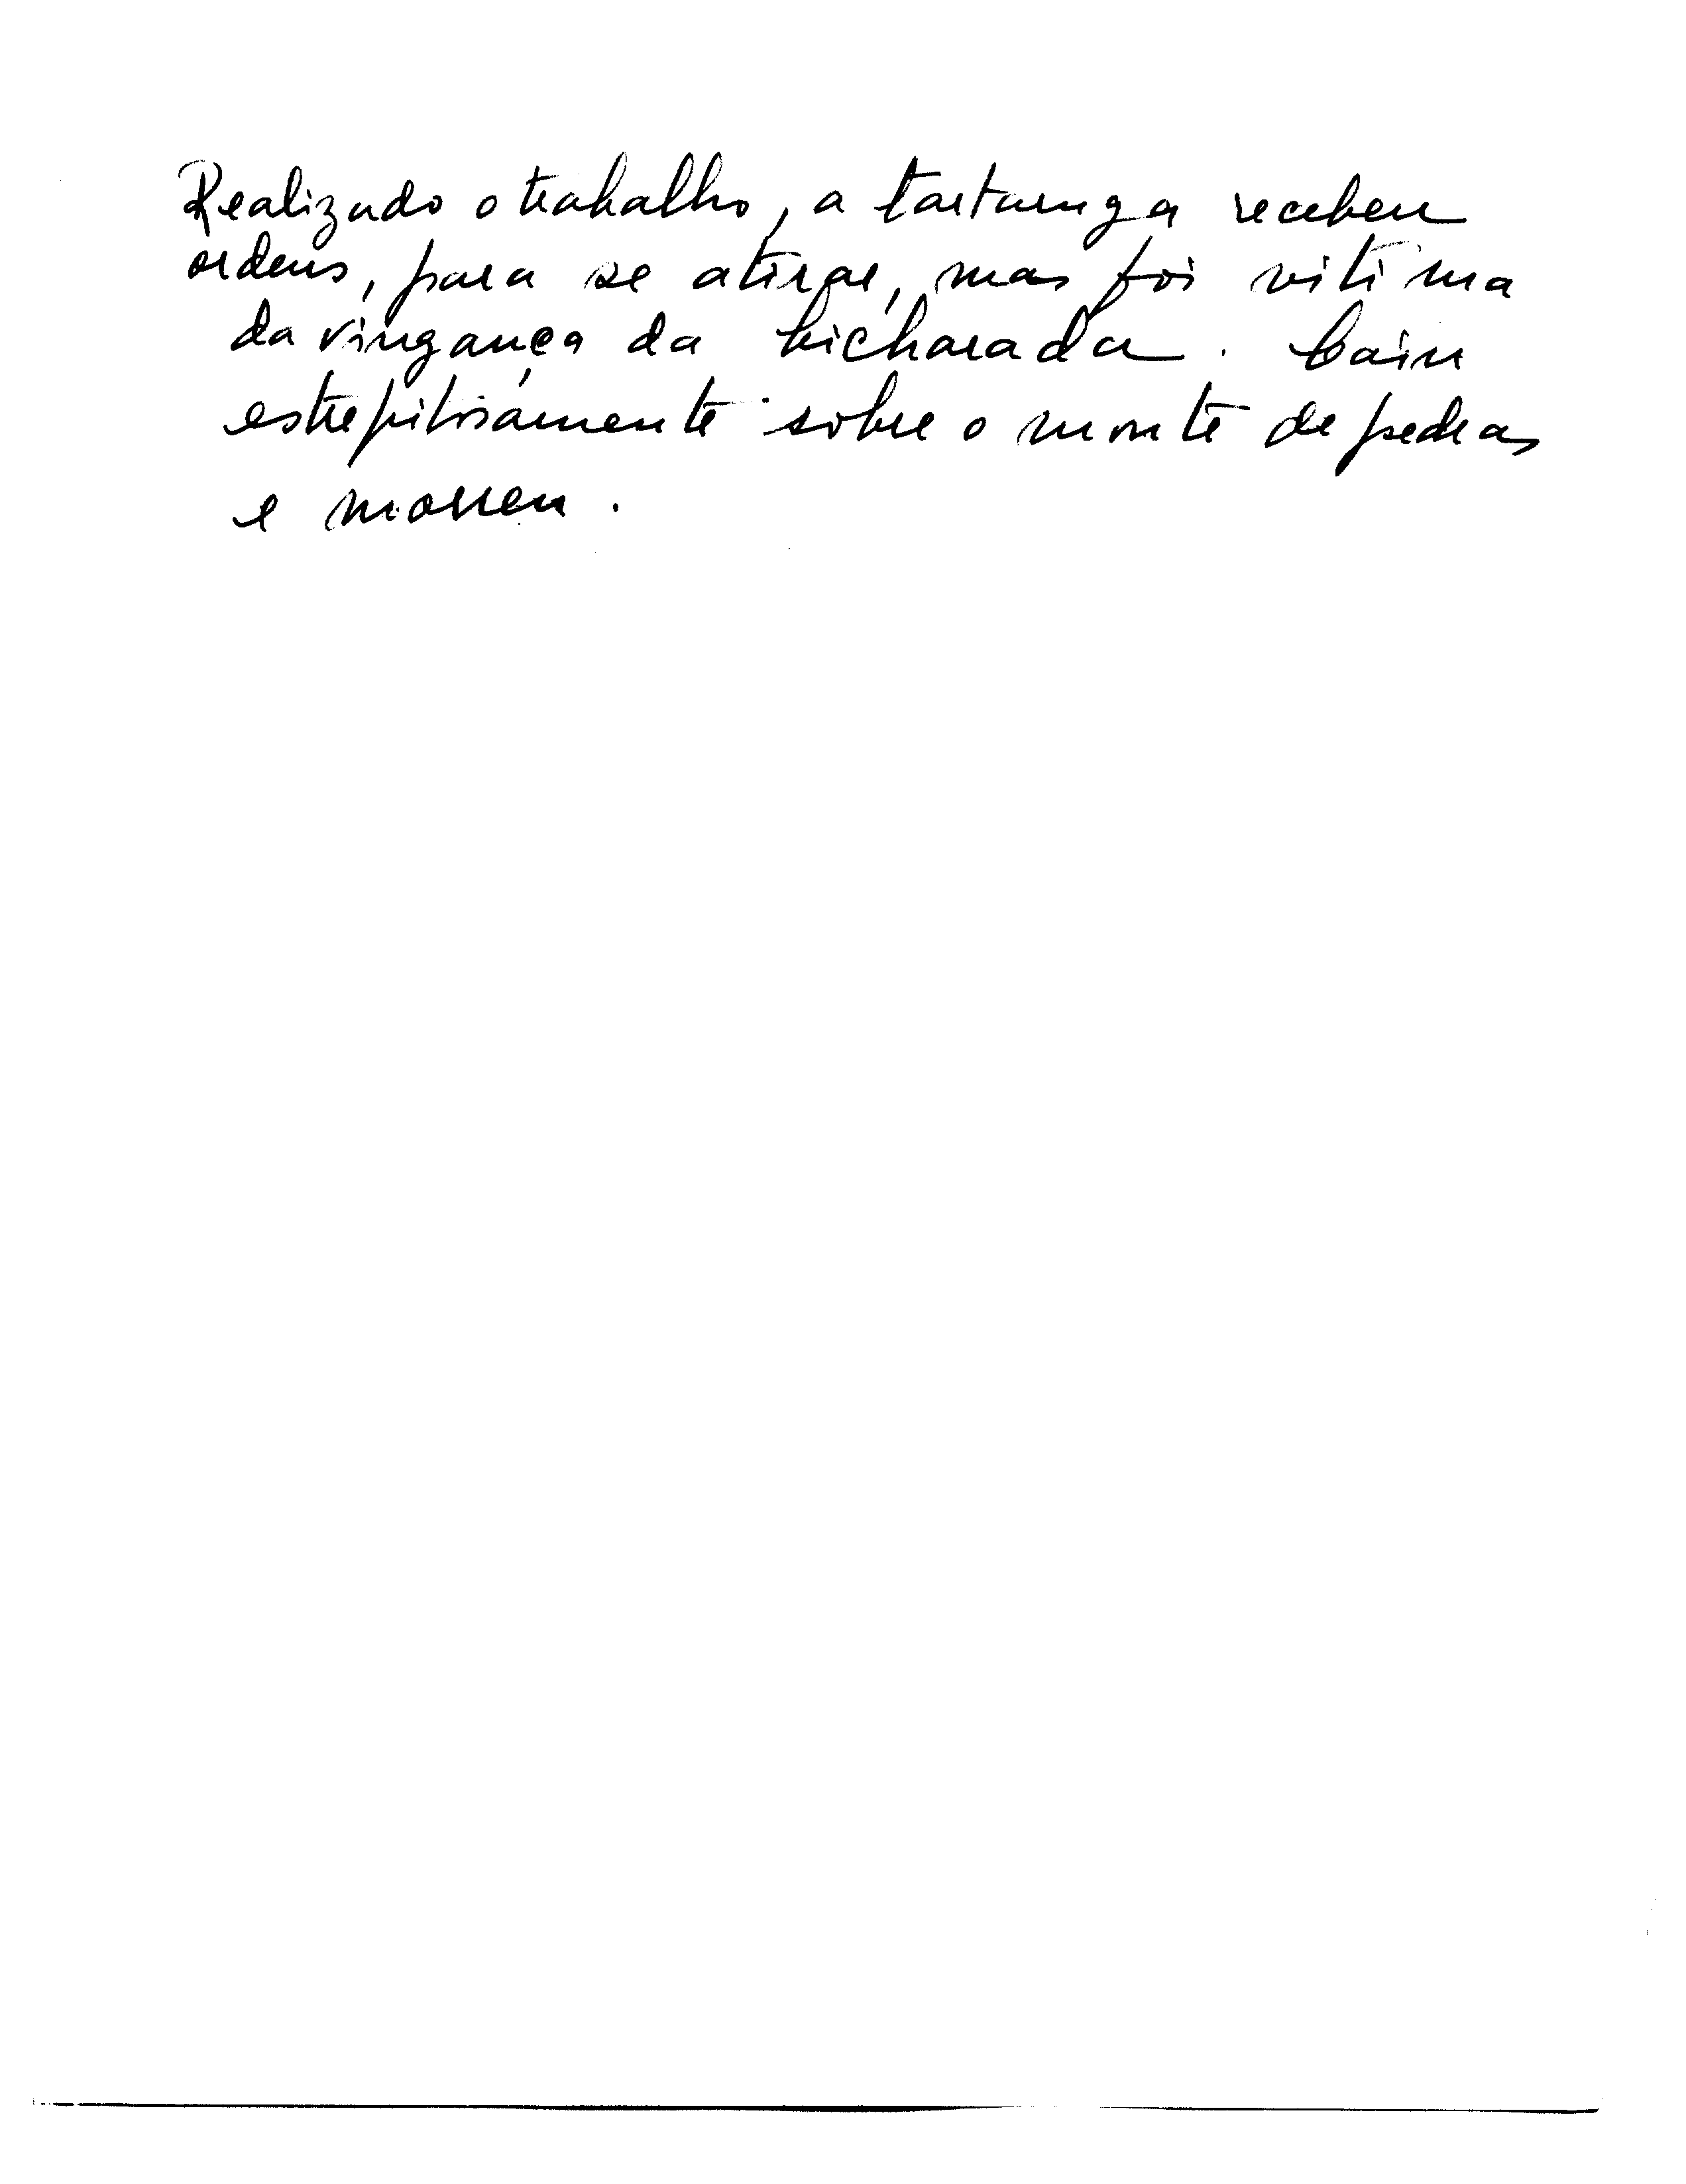 Realizado o trabalho, a tartaruga recebeu
ordens, para se atirar, mas foi vitima
da vingança da bicharada. Caiu
estrepitosamente sobre o monte de pedras
e morreu.